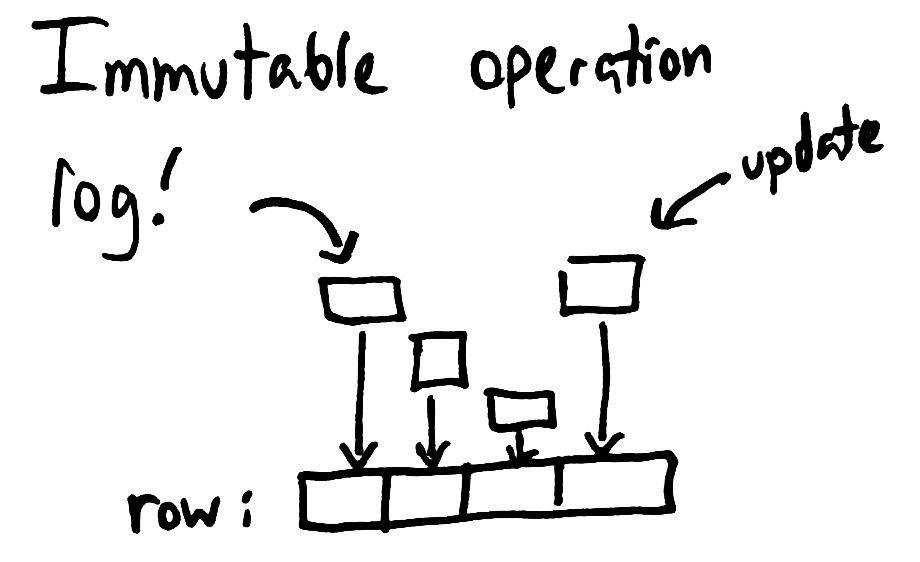 Immutable operation
log!
update
row: